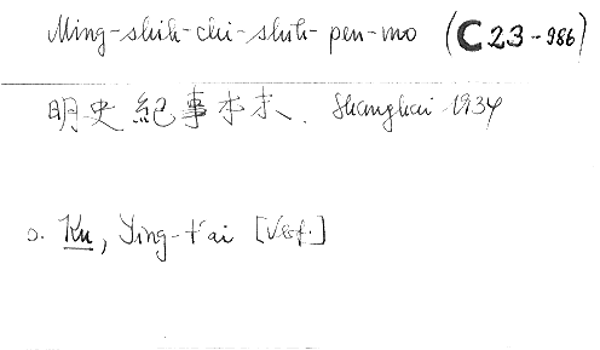 Ming-shih-chi-shih-pen-mo (C23-986)
明史紀事本末. Shanghai 1934
s. Ku, Ying-t'ai [Verf.]